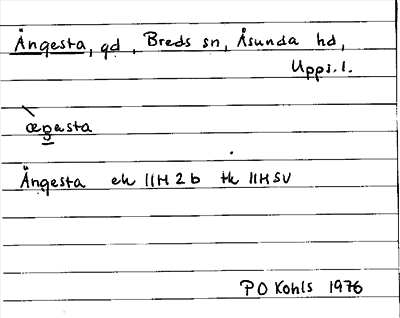 Ängesta, gd, Breds sn, Åsunda hd,
Upps. l.
`ængesta
Ängesta ek 11H 2b tk 11H SV
P O Kohls 1976